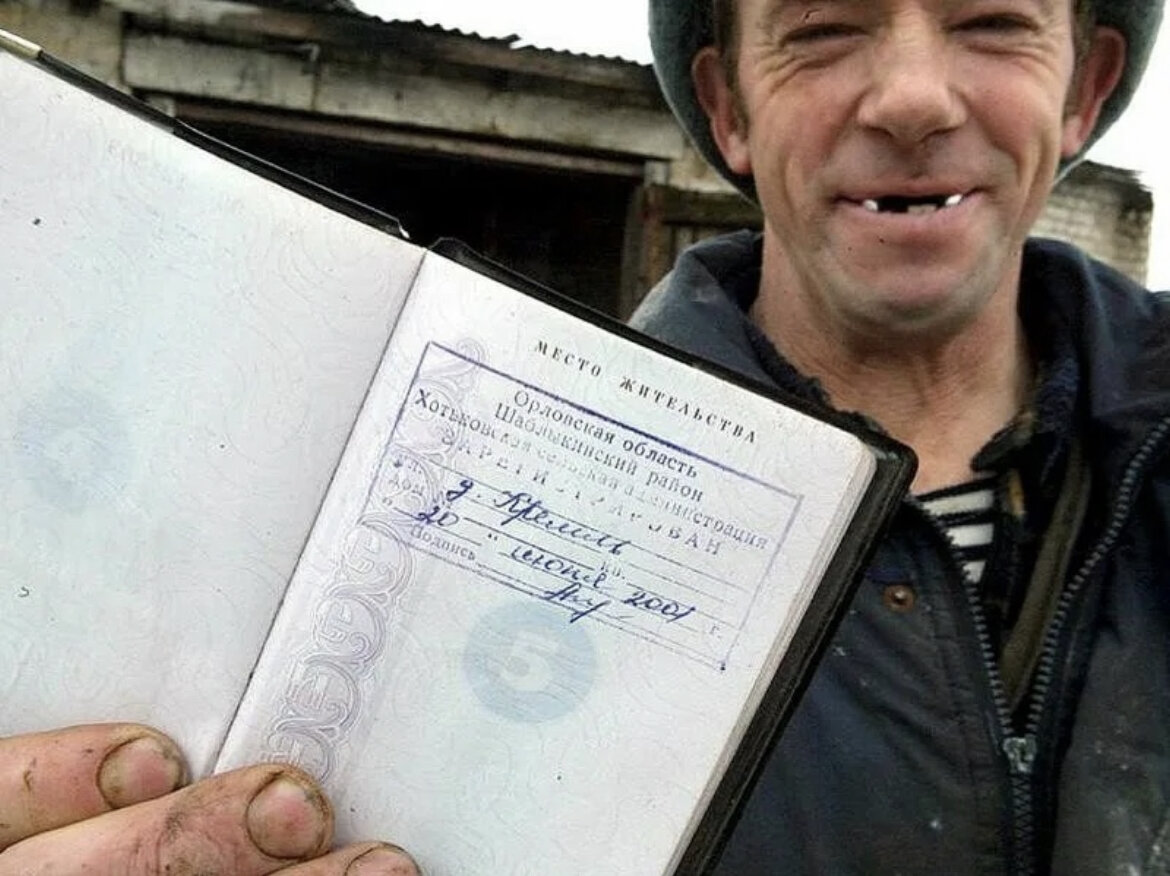 МЕСТО ЖИТЕЛЬСТВА
Орловская область
Шаблыкинский район
Хотьковская сельская администрация
ЗАРЕГИСТРИРОВАН
ул.
дом д. Кремль кв.
" 20 " июня 2001 г.
Подпись
5